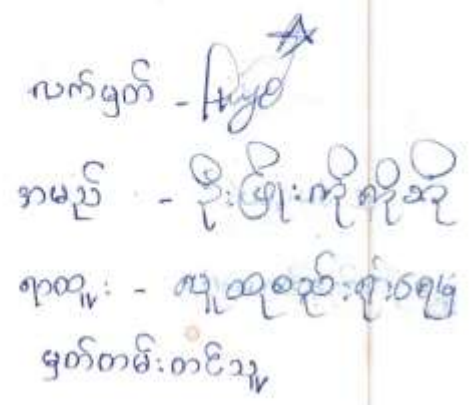 လက်မှတ် -
အမည် - ဦးဖြိုးကိုကိုအို
ရာထူး - လူထုစည်းရုံးရေးမှူး
မှတ်တမ်းတင်သူ